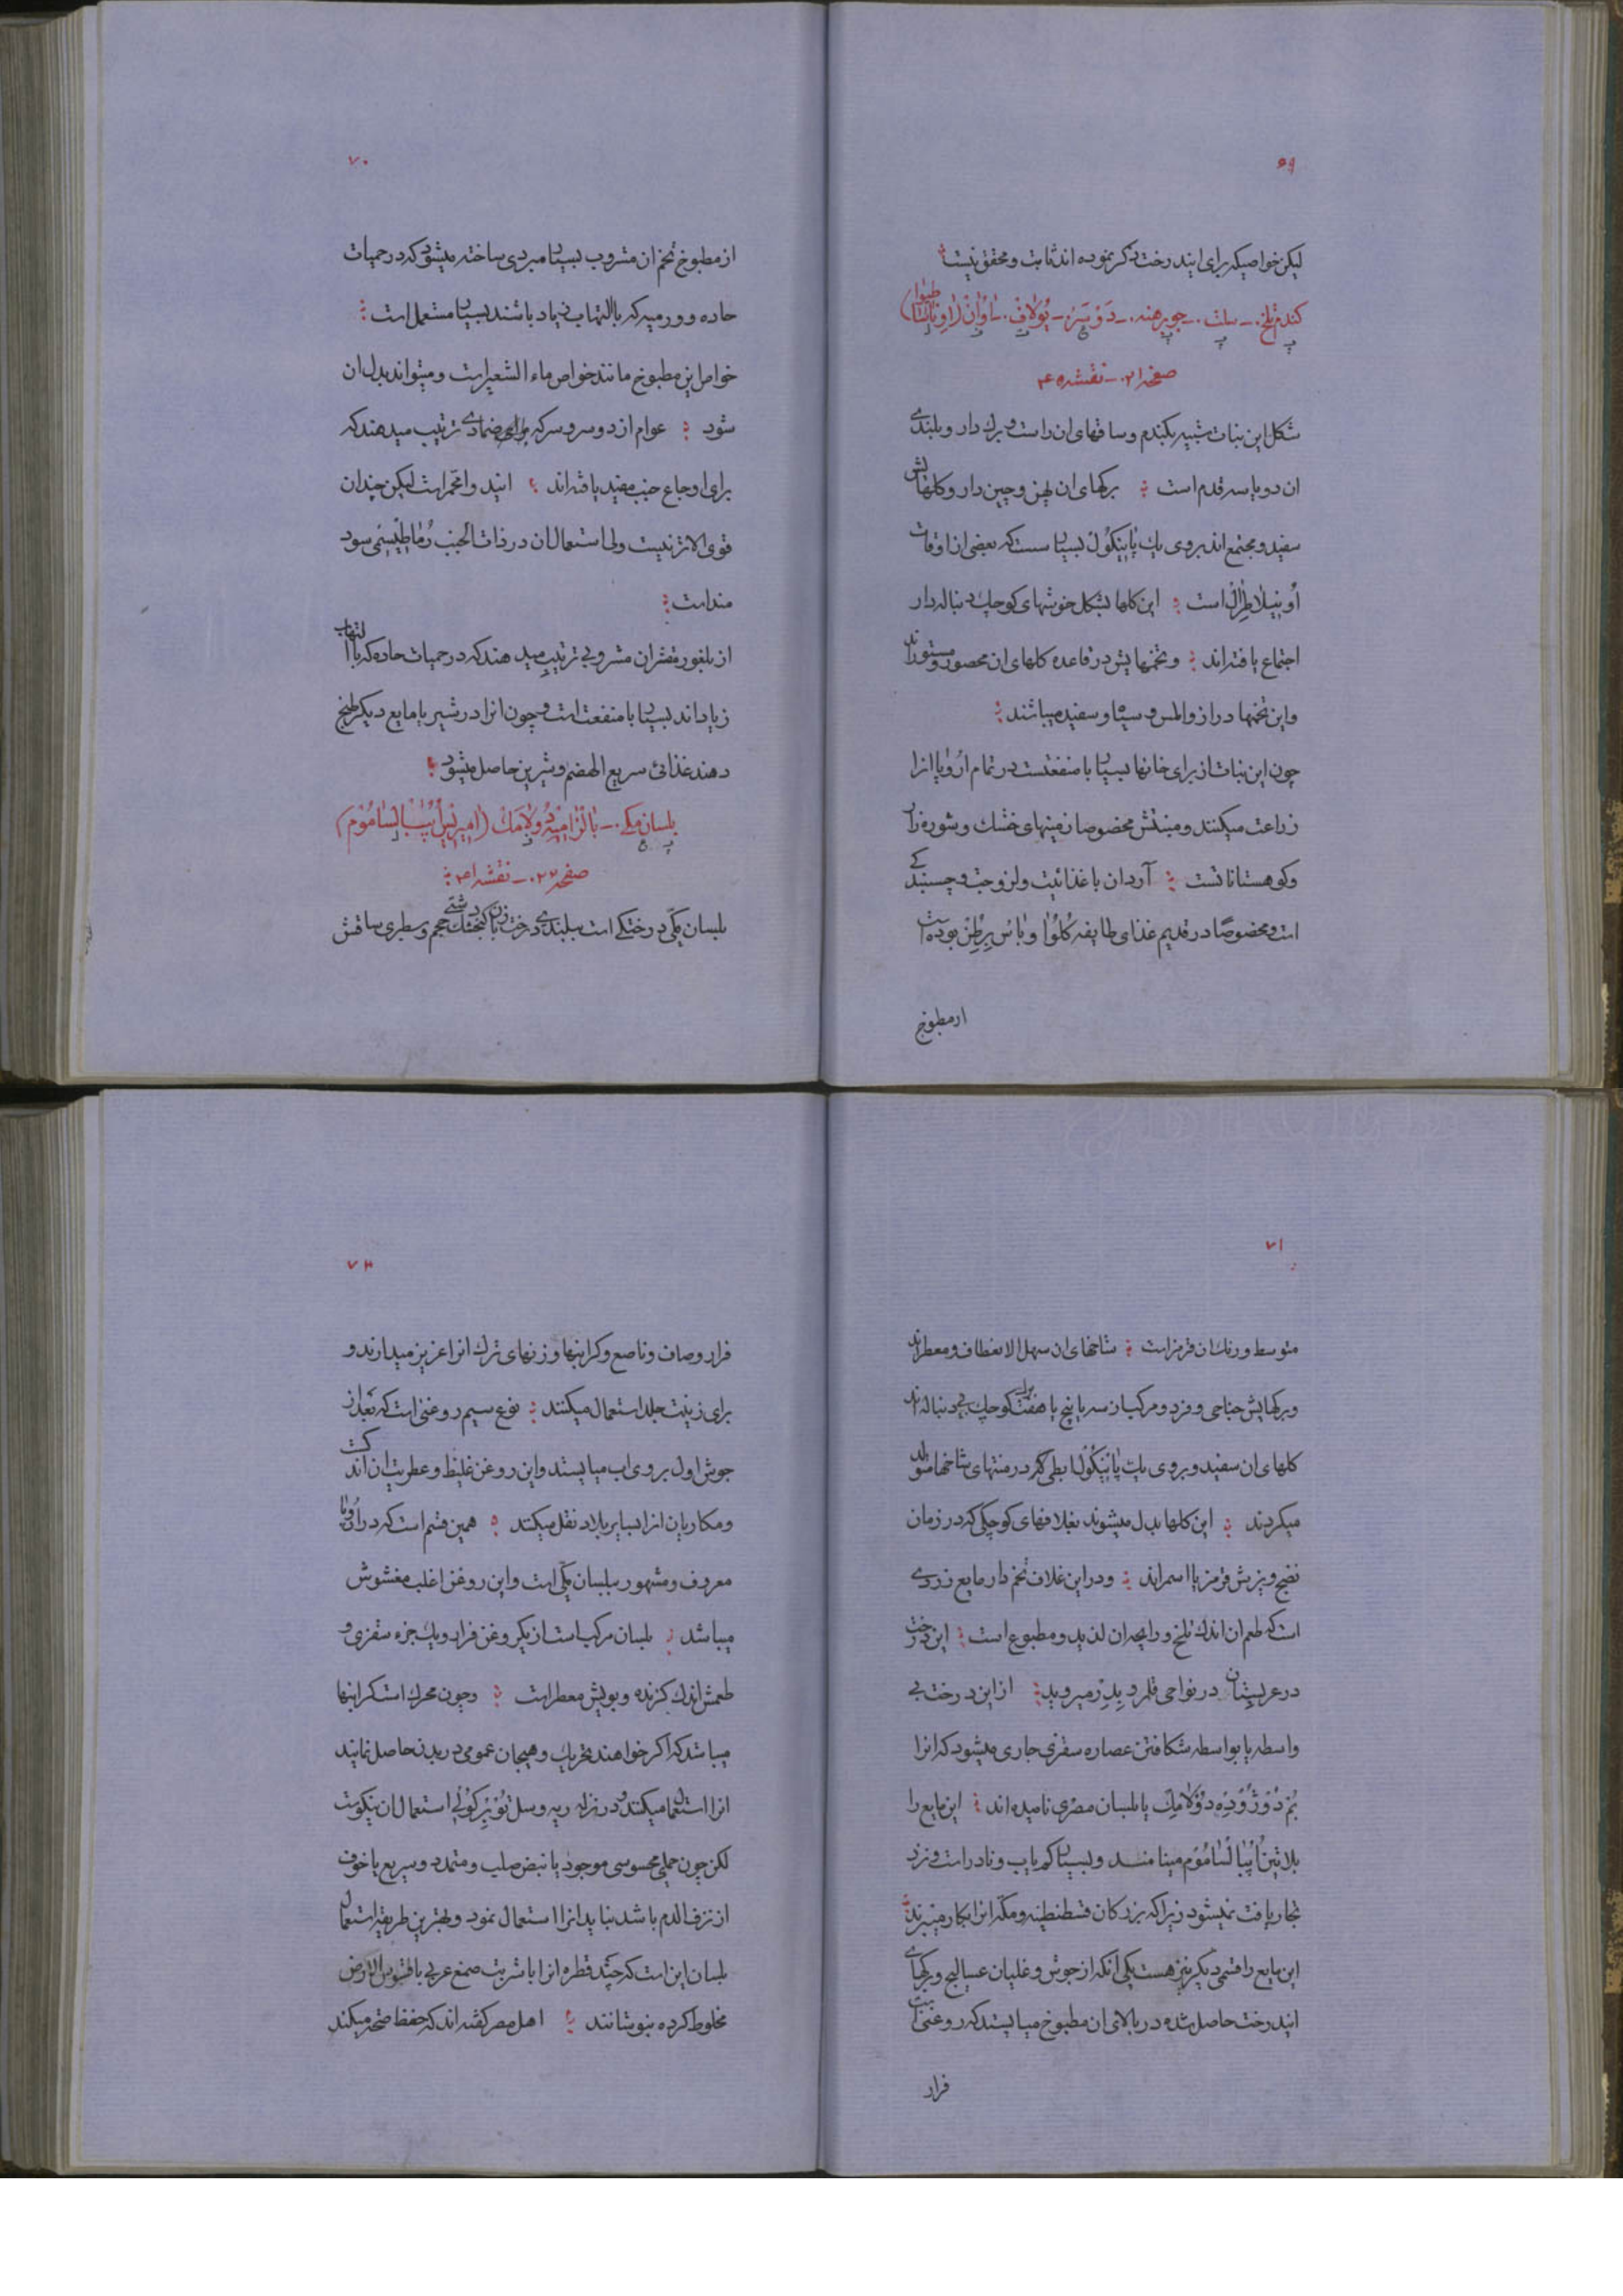 ۶۹
لیکن خواصیکه برای ایندرخت ذکر نموده اند ثابت و محقق نیست
کندم تلخ ـ سلت ـ جو برهنه ـ دوسر ـ یولاف ـ ساوان (اونا ساطیوا)
صفحه ۲۱ ـ نقشه ۴۰
شکل این نبات شبیه بکندم و ساقهای ان راست و برك دار و بلندی
ان دو یا سه قدم است برکهای ان پهن و چین دار و کلهایش
سفید و مجتمع اند بروی یك پانیکول بسیار سست که بعضی از اوقات
اونیلاطرال است این کلها بشکل خوشهای کوچك دنباله دار
اجتماع یافته اند و تخمهایش در قاعده کلهای ان محصور و مستورند
و این تخمها دراز و املس و سیاه و سفید میباشند
چون این نبات از برای خانها بسیار با منفعتست در تمام اروپا انرا
زراعت میکنند و مبنتش مخصوصا زمینهای خشك و شوره زار
و کوهستانانست آرد ان با غذائیت و لزوجت و چسبندکی
است و مخصوصًا در قدیم غذای طایفه کلوا و باس برطن بوده است
ازمطبوخ
۷۰
از مطبوخ تخم ان مشروب بسیار مبردی ساخته میشود که در حمیات
حاده و ورمیه که با التهاب زیاد باشند بسیار مستعمل است
خواص این مطبوخ مانند خواص ماء الشعیر است و میتواند بدل ان
شود عوام از دوسر و سرکه ضمادی ترتیب میدهند که
برای اوجاع جنب مفید یافته اند ایندوا محمر است لیکن چندان
قوی الاثر نیست ولی استعمال ان در ذات الجنب رماطیسمی سود
مند است
از بلغور مقشر ان مشروبی ترتیب میدهند که در حمیات حاده که با التهاب
زیاد اند بسیار با منفعت است و چون انرا در شیر یا مایع دیکر طبخ
دهند غذائی سریع الهضم و شیرین حاصل میشود
بلسان مکی ـ بالزامیه دولامك (امیریس اپبالسامُوم)
صفحه ۲۷ ـ نقشه ۴۱
بلسان مکّی درختکی است ببلندی درخت زبان کنجشك دشتی حجم و سطبری ساقش
۷۱
متوسط و رنك ان قرمز است شاخهای ان سهل الانعطاف و معطراند
و برکهایش جناحی و فرد و مرکب از سه یا پنج یا هفت برك کوچك بی دنباله اند
کلهای ان سفید و بروی یك پانیکول ابطی که در منتهای شاخها متولد
میکردند این کلها بدل میشوند بغلافهای کوچکی که در زمان
نضج و پزش قرمز یا اسمراند و در این غلاف تخم دار مایع زردی
است که طعم ان اندك تلخ و رایحه ان لذید و مطبوع است این درخت
در عربستان در نواحی قلمرو بدر میروید از این درخت بی
واسطه یا بواسطه شکافتن عصاره سقزی جاری میشود که انرا
بم دوژوده دولامك یا بلسان مصری نامیده اند این مایع را
بلاتین اپبالسامُوم مینامند و بسیار کم یاب و نادر است و نزد
تجار یافت نمیشود زیرا که بزرکان قسطنطنیه و مکه انرا بکار میبرند
این مایع را قسمی دیکر نیز هست یکی آنکه از جوش و غلیان عسالیج و برکهای
ایندرخت حاصل شده در بالای ان مطبوخ میایستد که روغنی است
فرار
۷۲
فرار و صاف و ناصع و کرانبها و زنهای ترك انرا عزیز میدارند و
برای زینت جلد استعمال میکنند نوع سیم روغنی است که بعد از
جوش اول بروی اب میایستد و این روغن غلیظ و عطریت ان اندکست
و مکاریان انرا بسایر بلاد نقل میکنند همین قسم است که در اروپا
معروف و مشهور ببلسان مکّی است و این روغن اغلب مغشوش
میباشد بلسان مرکب است از یك روغن فرار و یك جزء سقزی و
طعمش اندك کزنده و بویش معطر است و چون محرك است کرانبها
میباشد که اکر خواهند تحریك و هیجان عمومی در بدن حاصل نمایند
انرا استعمال میکنند و در نزله ریه و سل توبرکولی استعمال ان نیکوست
لکن چون حمّی محسوسی موجود یا نبض صلب و متمدد و سریع یا خوف
از نزف الدم باشد نباید انرا استعمال نمود و بهترین طریقه استعمال
بلسان این است که چند قطره انرا با شربت صمغ عربی یا
مخلوط کرده بنوشانند اهل مصر کفته اند که حفظ صحه میکند